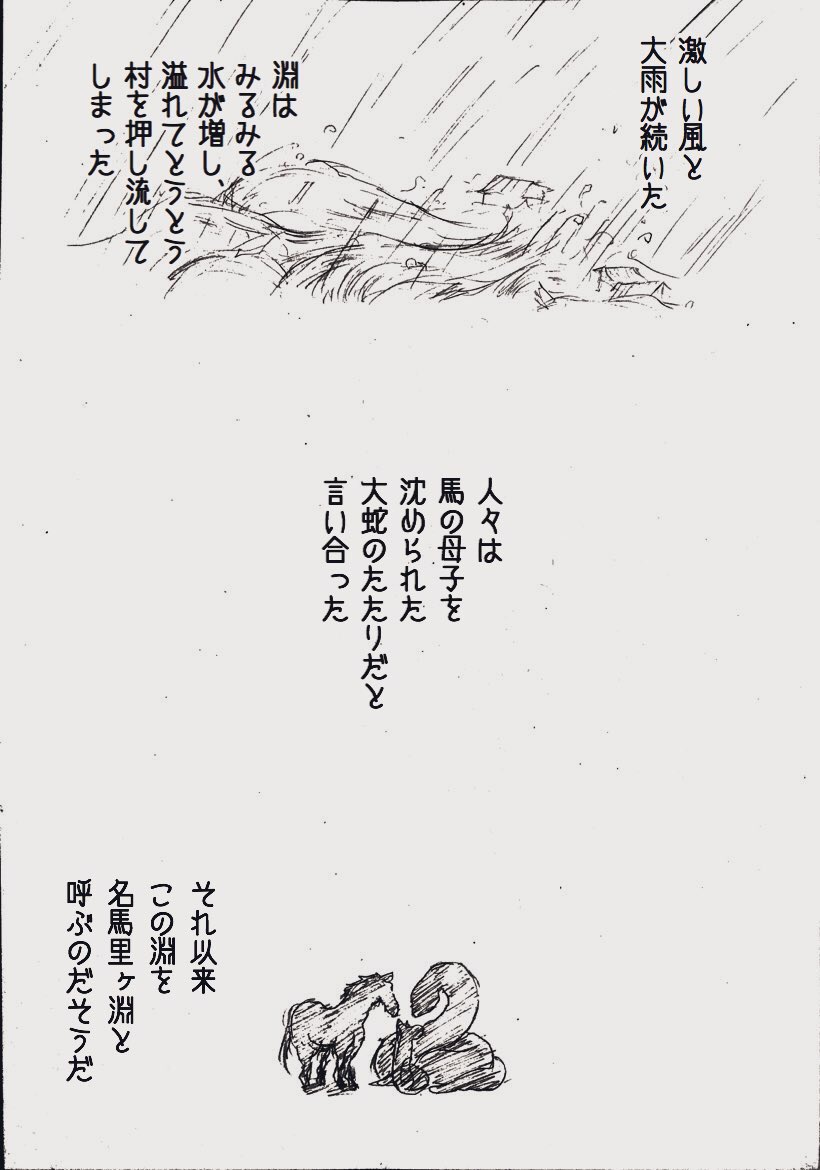 激しい風と
大雨が続いた
淵は
みるみる
水が増し、
溢れてとうとう
村を押し流して
しまった
人々は
馬の母子を
沈められた
大蛇のたたりだと
言い合った
それ以来
この淵を
名馬里ヶ淵と
呼ぶのだそうだ